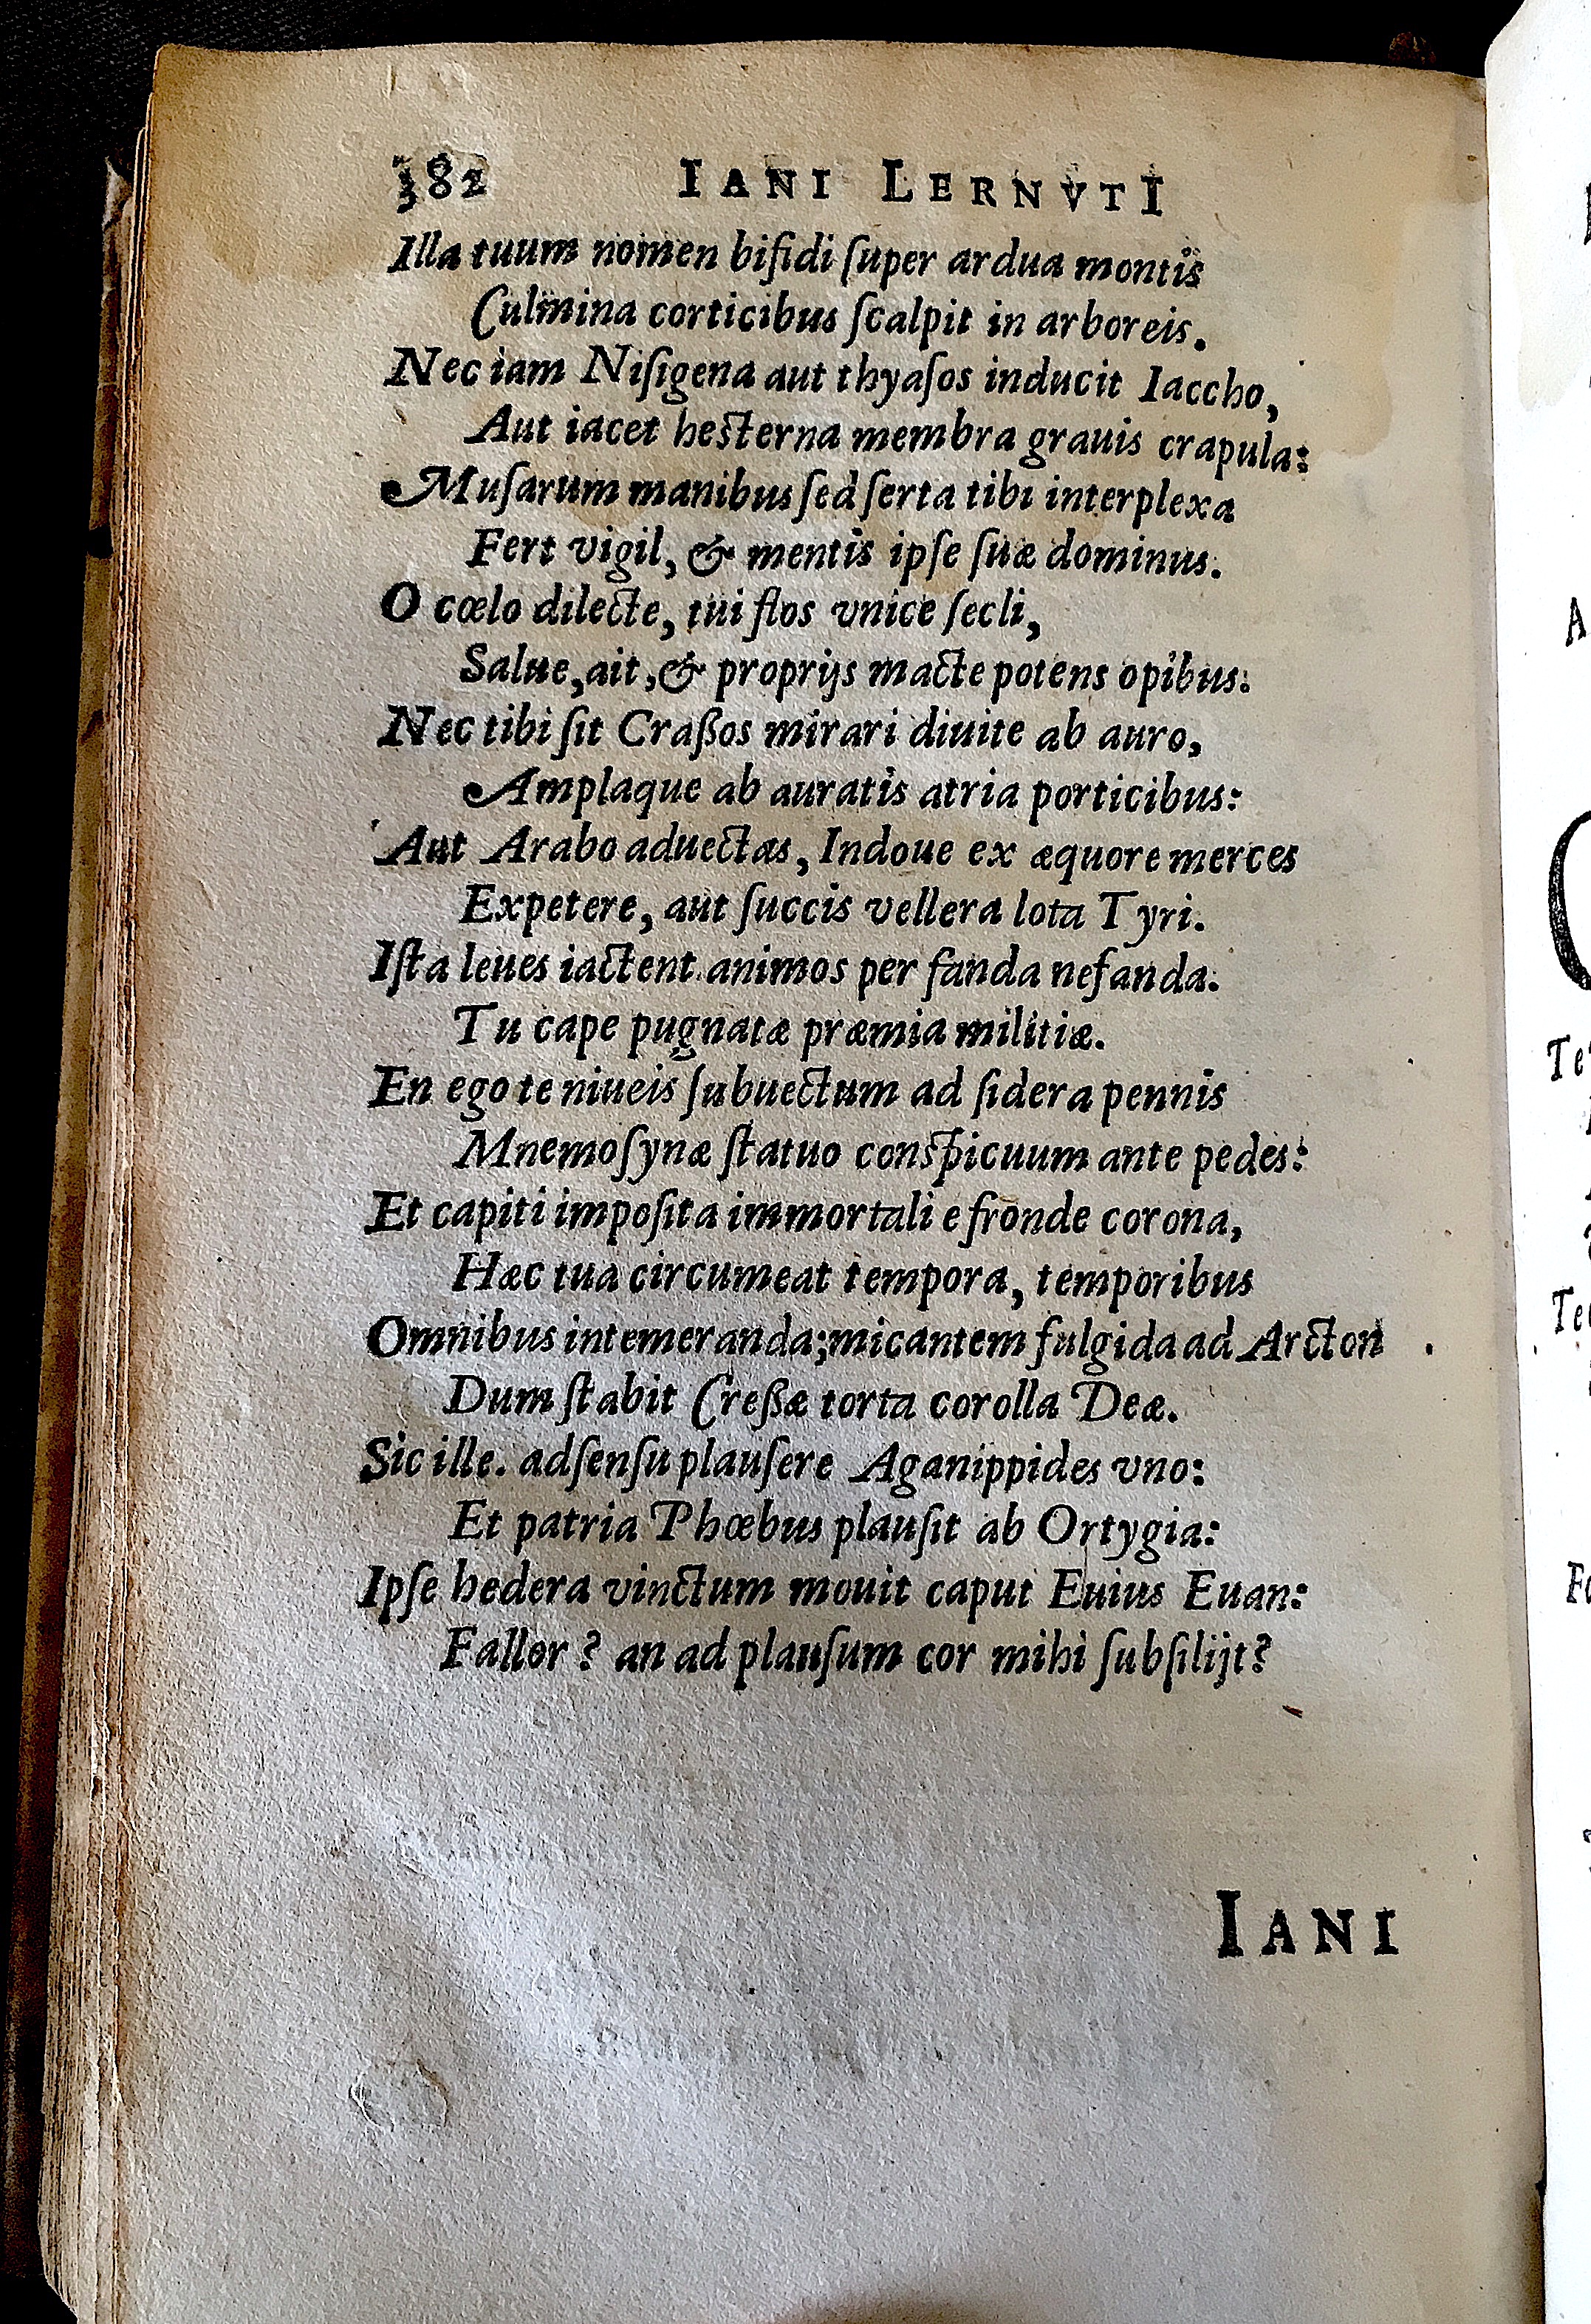 382 IANI LERNVTI
Illa tuum nomen bifidi ſuper ardua montis
Culmina corticibus ſcalpit in arboreis.
Nec iam Niſigena aut thyaſos inducit Iaccho,
Aut iacet heſterna membra grauis crapula:
Muſarum manibus ſed ſerta tibi interplexa
Fert vigil, & mentis ipſe ſuæ dominus.
O cœlo dilecte, tui flos vnice ſecli,
Salue, ait, & proprijs macte potens opibus:
Nec tibi ſit Craßos mirari diuite ab auro,
Amplaque ab auratis atria porticibus:
Aut Arabo aduectas, Indoue ex æquore merces
Expetere, aut ſuccis vellera lota Tyri.
Iſta leues iactent animos per fanda nefanda.
Tu cape pugnatæ præmia militiæ.
En ego te niueis ſubuectum ad ſidera pennis
Mnemoſynæ ſtatuo conſpicuum ante pedes:
Et capiti impoſita immortali e fronde corona,
Hæc tua circumeat tempora, temporibus
Omnibus intemeranda; micantem fulgida ad Arcton
Dum ſtabit Creßæ torta corolla Deæ.
Sic ille. adſenſu plauſere Aganippides vno:
Et patria Phœbus plauſit ab Ortygia:
Ipſe hedera vinctum mouit caput Euius Euan:
Fallor? an ad plauſum cor mihi ſubſilijt?
IANI